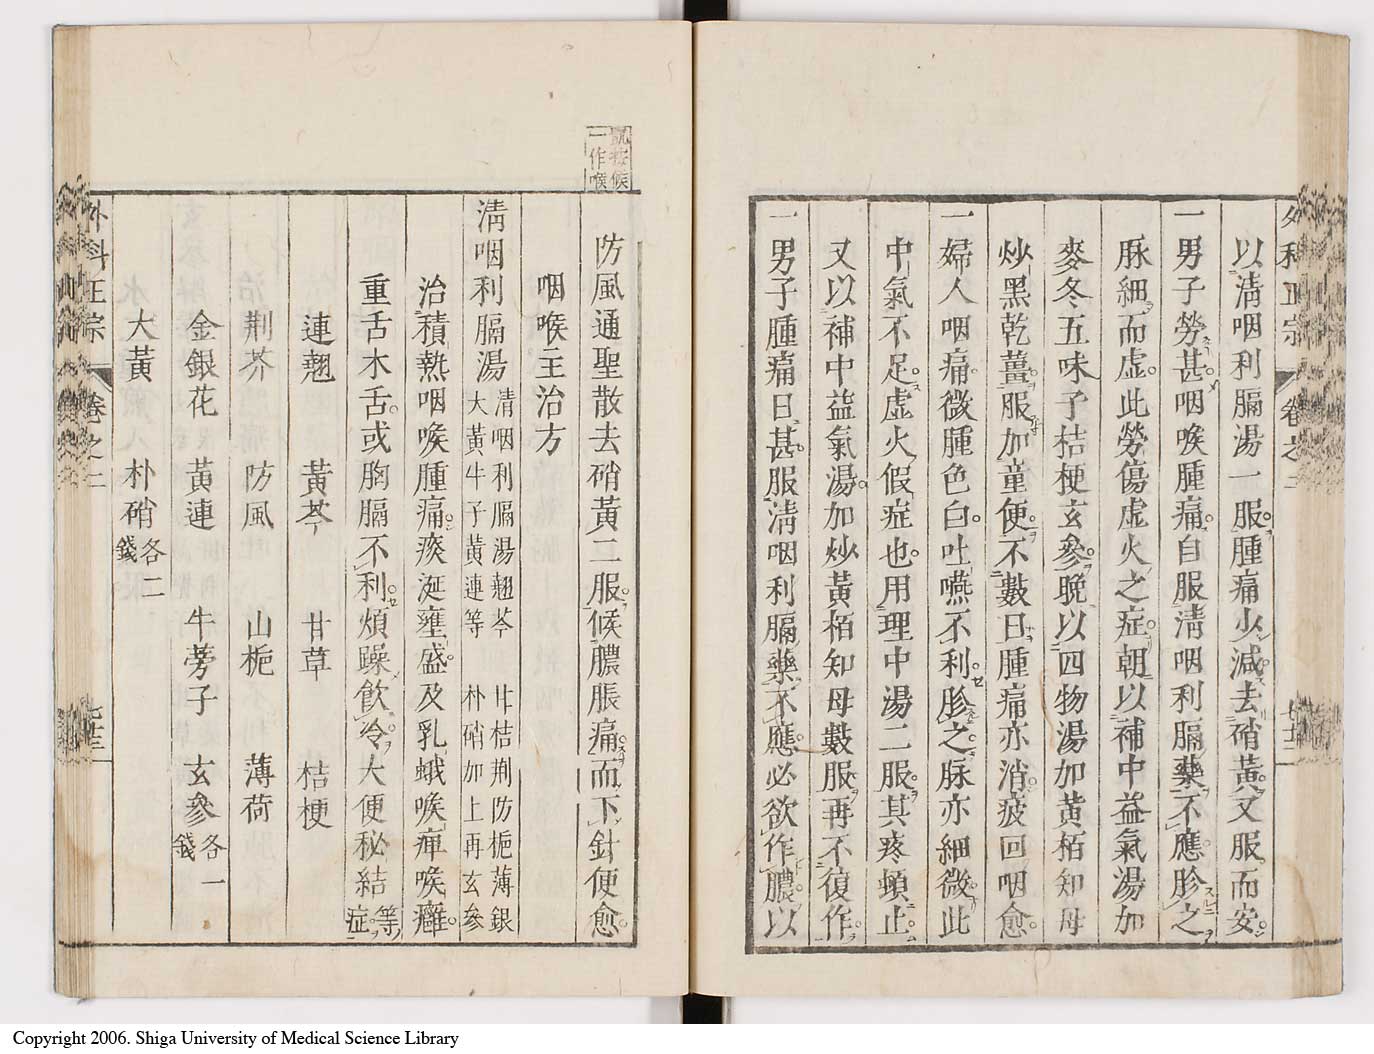 外科正宗 卷之二 七十二
以淸咽利膈湯一服腫痛少減去硝黃又服而安
一男子勞甚咽喉腫痛自服淸咽利膈藥不應胗之
脉細而虛此勞傷虛火之症朝以補中益氣湯加
麥冬五味子桔梗玄參晩以四物湯加黃栢知母
炒黑乾薑服加童便不數日腫痛亦消疲回咽愈
一婦人咽痛微腫色白吐嚥不利胗之脉亦細微此
中氣不足虛火假症也用理中湯二服其疼頓止
又以補中益氣湯加炒黃栢知母數服再不復作
一男子腫痛日甚服淸咽利膈藥不應必欲作膿以
凱按候
一作喉
防風通聖散去硝黃二服候膿脹痛而下針便愈
咽喉主治方
淸咽利膈湯 清咽利膈湯翹芩 甘桔荆防梔薄銀
大黃牛子黃連等 朴硝加上再玄參
治積熱咽喉腫痛痰涎壅盛及乳蛾喉痺喉癰
重舌木舌或胸膈不利煩躁飮冷大便秘結等症
連翹 黃芩 甘草 桔梗
荆芥 防風 山梔 薄荷
金銀花 黃連 牛蒡子 玄參各一錢
大黃 朴硝各二錢
外科正宗 卷之二 七十三
Copyright 2006. Shiga University of Medical Science Library